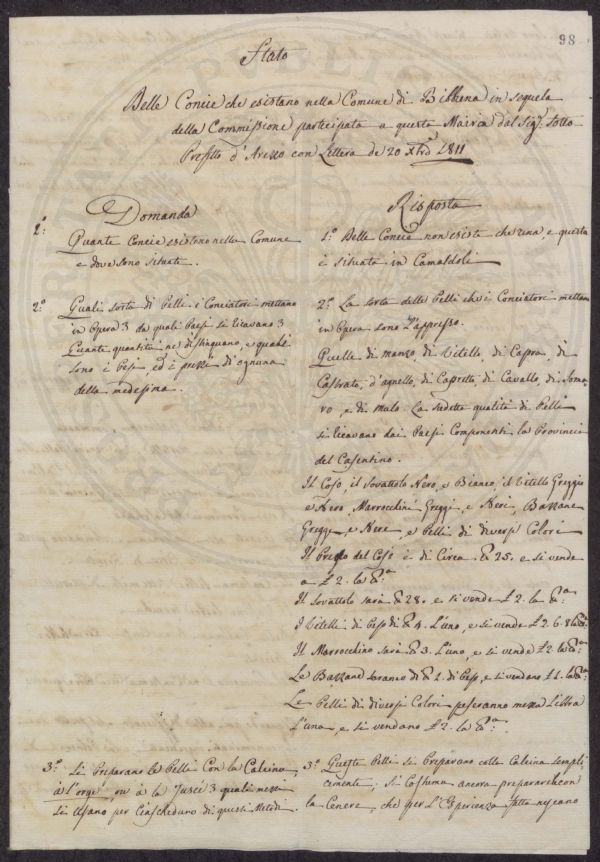 98
Stato
Delle Concie che esistano nella Comune di Bibbena in seguela
della Commissione partecipata a questa Mairia dal Sig.r Sotto
Prefetto d'Arezzo con Lettera de 20 Xbre 1811
Domanda
1.° Quante Concie esistono nella Comune
e dove sono situate.
2.° Quali sorte di Pelli i Conciatori mettano
in Opera 3 da quali Paesi si ricavano 3
Quante quantità ne distinguano, e quali
sono i Pesi, ed i prezzi di ognuna
della medesima.
3.° Si Preparano le Pelli Con la Calcina,
à l'orge, ou à la Jusée 3 quali mezzi
si usano per Ciascheduno di questi Metodi.
Risposta
1.° Delle Concie non esiste che una, e questa
è situata in Camaldoli
2.° La sorta delle Pelli che i Conciatori mettano
in Opera sono l'appresso.
Quelle di manzo, di Vitello, di Capra, di
Castrato, d'agnello, di Capretto, di Cavallo, di Soma
ro, e di mulo. La sudetta qualità di Pelli
si ricavano dai Paesi Componenti la Provincia
del Casentino.
Il Cojo, il Sovattolo Nero, e Bianco, il Vitello Greggio
e Nero, Marrocchini Greggi, e Neri, Bazzane
Gregge, e Nere, e Pelli di diversi Colori
Il Prezzo del Cojo è di Circa ℔ 25. e si vende
a £ 2. la ℔a
Il Sovattolo sarà ℔ 28. e si vende £ 2. la ℔a:
I Vitelli di Peso di ℔ 4. l'uno, e si vende £ 2. 6. 8 la ℔a:
Il Marrocchino sarà ℔ 3. l'uno, e si vende £ 2. la ℔a:
Le Bazzane saranno di ℔ 2. di Peso, e si vendano £ 1. la ℔a:
Le Pelli di diversi Colori peseranno mezza Libbra
l'una e si vendano £ 2. la ℔a.
3.° Queste Pelli si Preparano colla Calcina sempli
cemente; si Costuma ancora prepararle con
la Cenere, che per l'Esperienza fatta